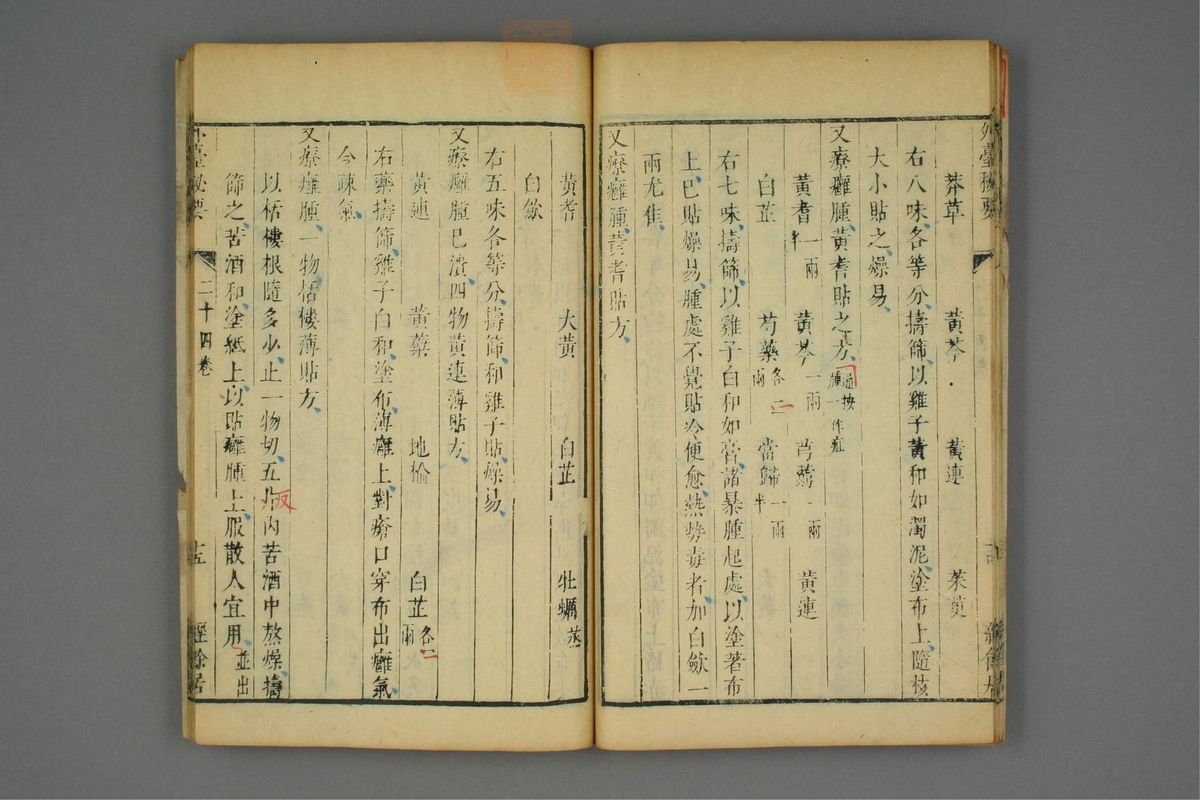 莽草 黃芩 黃連 茱萸
右八味各等分擣篩以雞子黃和如濁泥塗布上隨核
大小貼之燥易
又療癰腫黃耆貼之方
腫一作疽
黃耆一兩半 黃芩一兩 芎藭一兩 黃連
白芷 芍藥各二兩 當歸一兩半
右七味擣篩以雞子白和如膏諸暴腫起處以塗著布
上巳貼燥易腫處不覺貼冷便愈熱勢毒者加白歛一
兩尤佳
又療癰腫黃耆貼方
黃耆 大黃 白芷 牡蠣蒸
白歛
右五味各等分擣篩和雞子貼燥易
又療癰腫巳潰四物黃連薄貼方
黃連 黃蘗 地榆 白芷各二兩
右藥擣篩雞子白和塗布薄癰上對瘡口穿布出癰氣
令疎氣
又療癰腫一物栝樓薄貼方
以栝樓根隨多少止一物切五片內苦酒中熬燥擣
反
篩之苦酒和塗紙上以貼癰腫上服散人宜用並出
二十四卷
外臺秘要
十五
經餘居